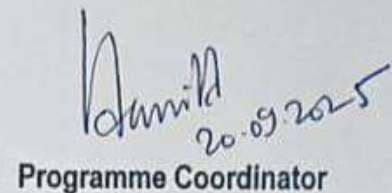 20.09.2025
Programme Coordinator